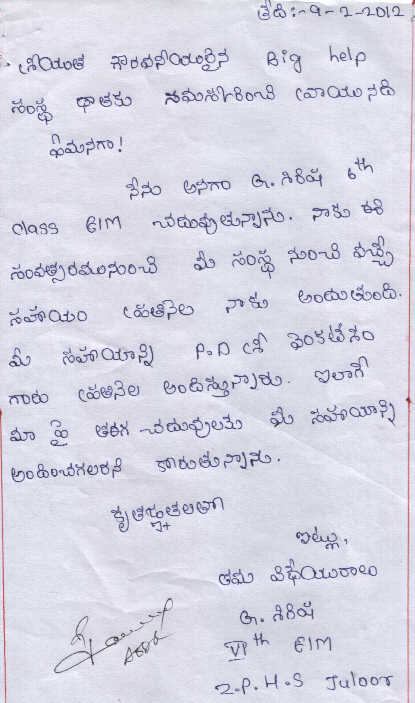 తేది:-9-2-2012
శ్రీయుత గౌరవనీయులైన Big help
సంస్థ దాతకు నమస్కరించి వ్రాయునది
ఏమనగా!
నేను అనగా G. శిరిష 6th
class E/M చదువుతున్నాను. నాకు ఈ
సంవత్సరమునుంచి మీ సంస్థ నుంచి వచ్చే
సహాయం ప్రతినెల నాకు అందుతుంది.
మీ సహాయాన్ని P.D శ్రీ వెంకటేశం
గారు ప్రతినెల అందిస్తున్నారు. ఇలాగే
మా పై తరగ చదువులకు మీ సహాయాన్ని
అందించగలరని కోరుతున్నాను.
కృతజ్ఞతలతో
ఇట్లు,
తమ విధేయురాలు
G. శిరిష
VIth E/M
Z.P.H.S Juloor